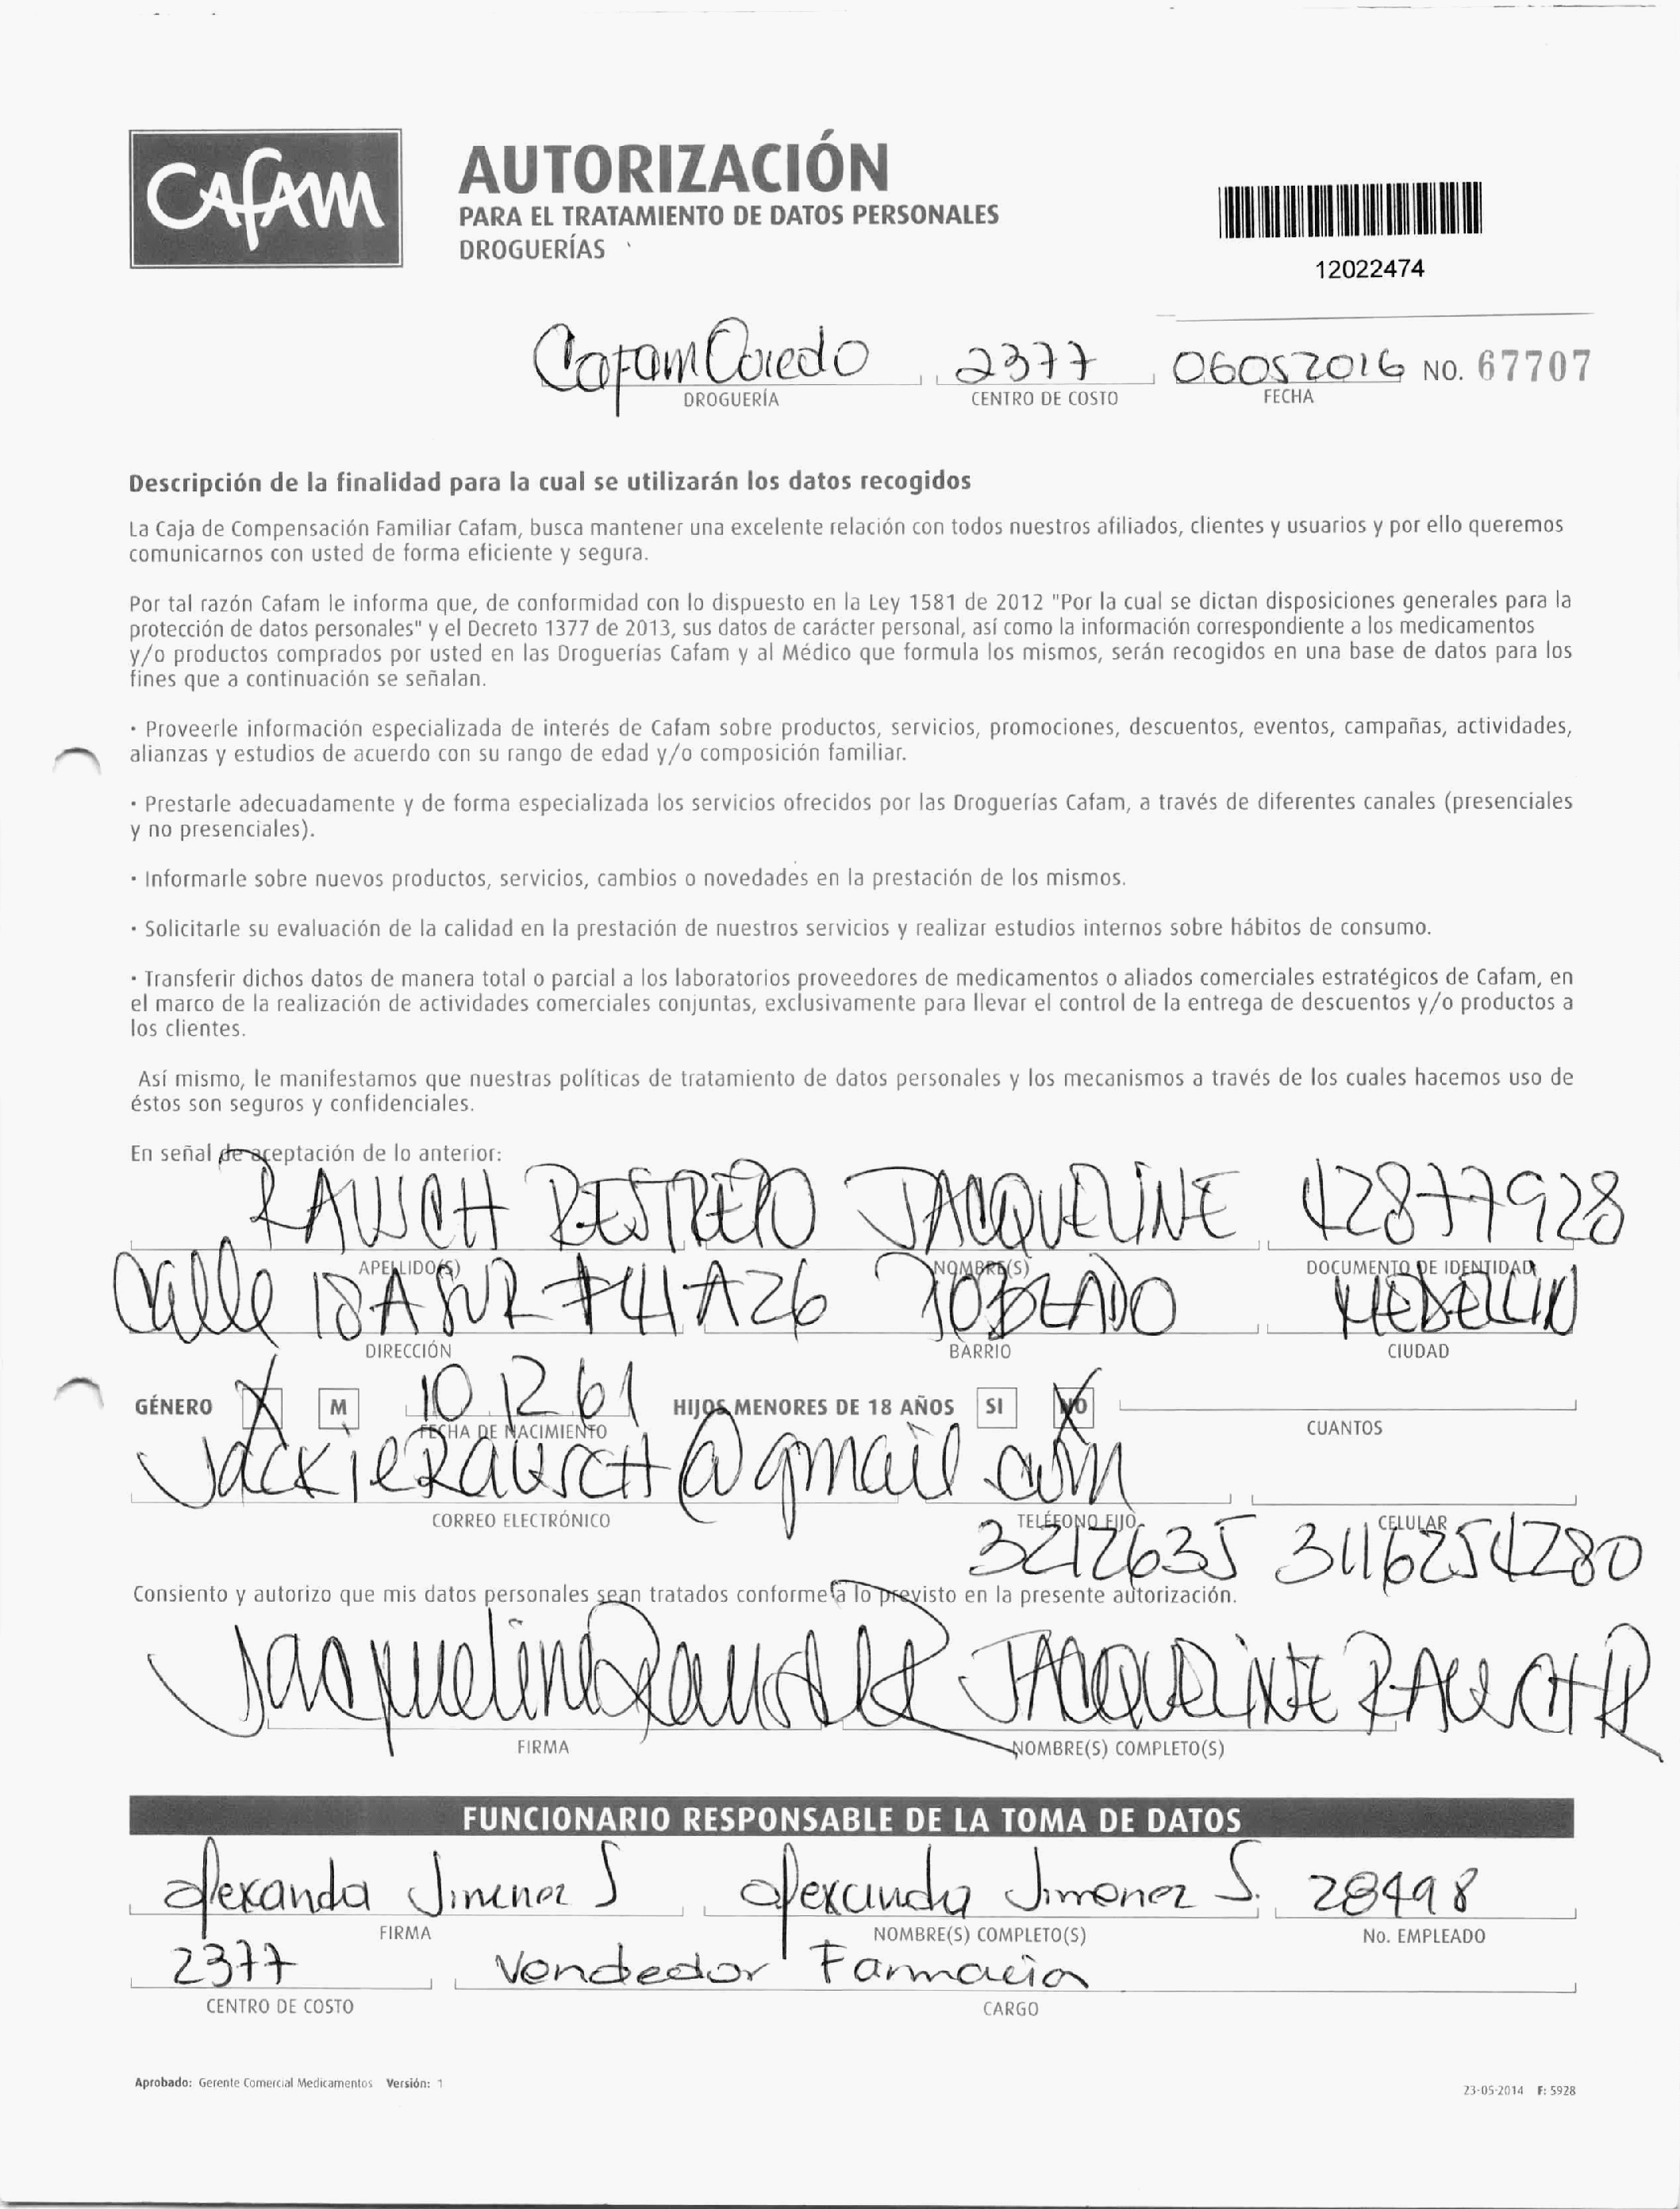 Cafam
AUTORIZACIÓN
PARA EL TRATAMIENTO DE DATOS PERSONALES
DROGUERÍAS
12022474
Cafam Oviedo 2377 06052016 NO. 67707
DROGUERÍA CENTRO DE COSTO FECHA
Descripción de la finalidad para la cual se utilizarán los datos recogidos
La Caja de Compensación Familiar Cafam, busca mantener una excelente relación con todos nuestros afiliados, clientes y usuarios y por ello queremos
comunicarnos con usted de forma eficiente y segura.
Por tal razón Cafam le informa que, de conformidad con lo dispuesto en la Ley 1581 de 2012 "Por la cual se dictan disposiciones generales para la
protección de datos personales" y el Decreto 1377 de 2013, sus datos de carácter personal, así como la información correspondiente a los medicamentos
y/o productos comprados por usted en las Droguerías Cafam y al Médico que formula los mismos, serán recogidos en una base de datos para los
fines que a continuación se señalan.
· Proveerle información especializada de interés de Cafam sobre productos, servicios, promociones, descuentos, eventos, campañas, actividades,
alianzas y estudios de acuerdo con su rango de edad y/o composición familiar.
· Prestarle adecuadamente y de forma especializada los servicios ofrecidos por las Droguerías Cafam, a través de diferentes canales (presenciales
y no presenciales).
· Informarle sobre nuevos productos, servicios, cambios o novedades en la prestación de los mismos.
· Solicitarle su evaluación de la calidad en la prestación de nuestros servicios y realizar estudios internos sobre hábitos de consumo.
· Transferir dichos datos de manera total o parcial a los laboratorios proveedores de medicamentos o aliados comerciales estratégicos de Cafam, en
el marco de la realización de actividades comerciales conjuntas, exclusivamente para llevar el control de la entrega de descuentos y/o productos a
los clientes.
Así mismo, le manifestamos que nuestras políticas de tratamiento de datos personales y los mecanismos a través de los cuales hacemos uso de
éstos son seguros y confidenciales.
En señal de aceptación de lo anterior:
RAUSCH RESTREPO JACQUELINE 42877928
APELLIDO(S) NOMBRE(S) DOCUMENTO DE IDENTIDAD
Calle 18 A SUR #41A26 POBLADO MEDELLIN
DIRECCIÓN BARRIO CIUDAD
GÉNERO X M 10 12 61 HIJOS MENORES DE 18 AÑOS SI NO
FECHA DE NACIMIENTO CUANTOS
JackieRausch@gmail.com
CORREO ELECTRÓNICO TELÉFONO FIJO CELULAR
3212635 3116254280
Consiento y autorizo que mis datos personales sean tratados conforme a lo previsto en la presente autorización.
Jacqueline Rausch R JACQUELINE RAUSCH R
FIRMA NOMBRE(S) COMPLETO(S)
FUNCIONARIO RESPONSABLE DE LA TOMA DE DATOS
Alexanda Jimenez S Alexandra Jimenez S. 28498
FIRMA NOMBRE(S) COMPLETO(S) No. EMPLEADO
2377 Vendedor Farmacia
CENTRO DE COSTO CARGO
Aprobado: Gerente Comercial Medicamentos Versión: 1
23-05-2014 F: 5928